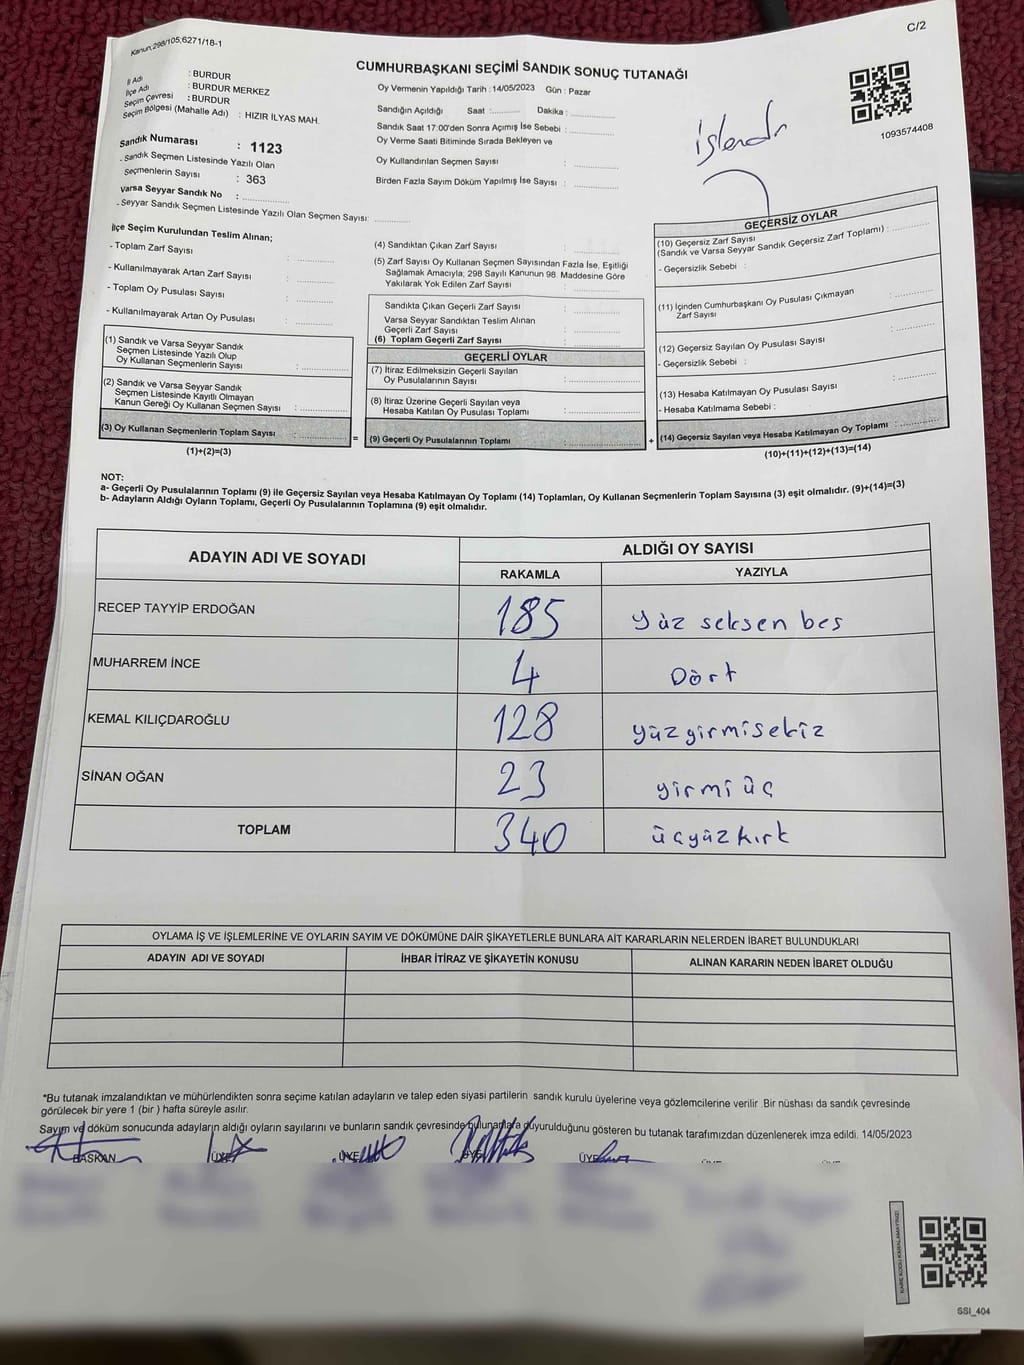 Kanun;298/105;6271/18-1
C/2
CUMHURBAŞKANI SEÇİMİ SANDIK SONUÇ TUTANAĞI
İl Adı : BURDUR
İlçe Adı : BURDUR MERKEZ
Seçim Çevresi : BURDUR
Seçim Bölgesi (Mahalle Adı) : HIZIR İLYAS MAH.
Sandık Numarası : 1123
- Sandık Seçmen Listesinde Yazılı Olan
Seçmenlerin Sayısı : 363
Varsa Seyyar Sandık No :
- Seyyar Sandık Seçmen Listesinde Yazılı Olan Seçmen Sayısı:
Oy Vermenin Yapıldığı Tarih : 14/05/2023 Gün : Pazar
Sandığın Açıldığı Saat : Dakika :
Sandık Saat 17:00'den Sonra Açımış İse Sebebi :
Oy Verme Saati Bitiminde Sırada Bekleyen ve
Oy Kullandırılan Seçmen Sayısı :
Birden Fazla Sayım Döküm Yapılmış İse Sayısı :
işlendi
1093574408
İlçe Seçim Kurulundan Teslim Alınan;
- Toplam Zarf Sayısı :
- Kullanılmayarak Artan Zarf Sayısı :
- Toplam Oy Pusulası Sayısı :
- Kullanılmayarak Artan Oy Pusulası :
(1) Sandık ve Varsa Seyyar Sandık
Seçmen Listesinde Yazılı Olup
Oy Kullanan Seçmenlerin Sayısı :
(2) Sandık ve Varsa Seyyar Sandık
Seçmen Listesinde Kayıtlı Olmayan
Kanun Gereği Oy Kullanan Seçmen Sayısı :
(3) Oy Kullanan Seçmenlerin Toplam Sayısı :
(1)+(2)=(3)
=
(4) Sandıktan Çıkan Zarf Sayısı :
(5) Zarf Sayısı Oy Kullanan Seçmen Sayısından Fazla İse, Eşitliği
Sağlamak Amacıyla, 298 Sayılı Kanunun 98. Maddesine Göre
Yakılarak Yok Edilen Zarf Sayısı :
Sandıkta Çıkan Geçerli Zarf Sayısı :
Varsa Seyyar Sandıktan Teslim Alınan
Geçerli Zarf Sayısı :
(6) Toplam Geçerli Zarf Sayısı :
GEÇERLİ OYLAR
(7) İtiraz Edilmeksizin Geçerli Sayılan
Oy Pusulalarının Sayısı :
(8) İtiraz Üzerine Geçerli Sayılan veya
Hesaba Katılan Oy Pusulası Toplamı :
(9) Geçerli Oy Pusulalarının Toplamı :
+
GEÇERSİZ OYLAR
(10) Geçersiz Zarf Sayısı
(Sandık ve Varsa Seyyar Sandık Geçersiz Zarf Toplamı) :
- Geçersizlik Sebebi :
(11) İçinden Cumhurbaşkanı Oy Pusulası Çıkmayan
Zarf Sayısı :
(12) Geçersiz Sayılan Oy Pusulası Sayısı :
- Geçersizlik Sebebi :
(13) Hesaba Katılmayan Oy Pusulası Sayısı :
- Hesaba Katılmama Sebebi :
(14) Geçersiz Sayılan veya Hesaba Katılmayan Oy Toplamı :
(10)+(11)+(12)+(13)=(14)
NOT:
a- Geçerli Oy Pusulalarının Toplamı (9) ile Geçersiz Sayılan veya Hesaba Katılmayan Oy Toplamı (14) Toplamları, Oy Kullanan Seçmenlerin Toplam Sayısına (3) eşit olmalıdır. (9)+(14)=(3)
b- Adayların Aldığı Oyların Toplamı, Geçerli Oy Pusulalarının Toplamına (9) eşit olmalıdır.
ADAYIN ADI VE SOYADI ALDIĞI OY SAYISI
RAKAMLA YAZIYLA
RECEP TAYYİP ERDOĞAN 185 yüz seksen beş
MUHARREM İNCE 4 Dört
KEMAL KILIÇDAROĞLU 128 yüzyirmisekiz
SİNAN OĞAN 23 yirmi üç
TOPLAM 340 üçyüzkırk
OYLAMA İŞ VE İŞLEMLERİNE VE OYLARIN SAYIM VE DÖKÜMÜNE DAİR ŞİKAYETLERLE BUNLARA AİT KARARLARIN NELERDEN İBARET BULUNDUKLARI
ADAYIN ADI VE SOYADI İHBAR İTİRAZ VE ŞİKAYETİN KONUSU ALINAN KARARIN NEDEN İBARET OLDUĞU
*Bu tutanak imzalandıktan ve mühürlendikten sonra seçime katılan adayların ve talep eden siyasi partilerin sandık kurulu üyelerine veya gözlemcilerine verilir .Bir nüshası da sandık çevresinde
görülecek bir yere 1 (bir ) hafta süreyle asılır.
Sayım ve döküm sonucunda adayların aldığı oyların sayılarını ve bunların sandık çevresinde bulunanlara duyurulduğunu gösteren bu tutanak tarafımızdan düzenlenerek imza edildi. 14/05/2023
BAŞKAN ÜYE ÜYE ÜYE ÜYE
KARE KODU KARALAMAYINIZ!
SSI_404